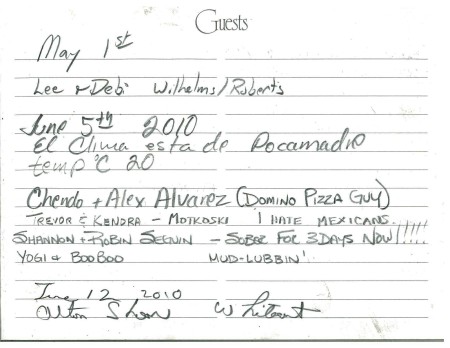 Guests
May 1st
Lee & Debi Wilhelms/Roberts
June 5th 2010
El Clima esta de Pocamadre
temp °C 20
Chendo + Alex Alvarez (Domino Pizza Guy)
TREVOR & KENDRA - MOTKOSKI I HATE MEXICANS.
SHANNON + ROBIN SEGUIN - SOBER FOR 3 DAYS NOW!!!!
YOGI & BOOBOO MUD-LUBBIN'
June 12 2010
Alton Shaw